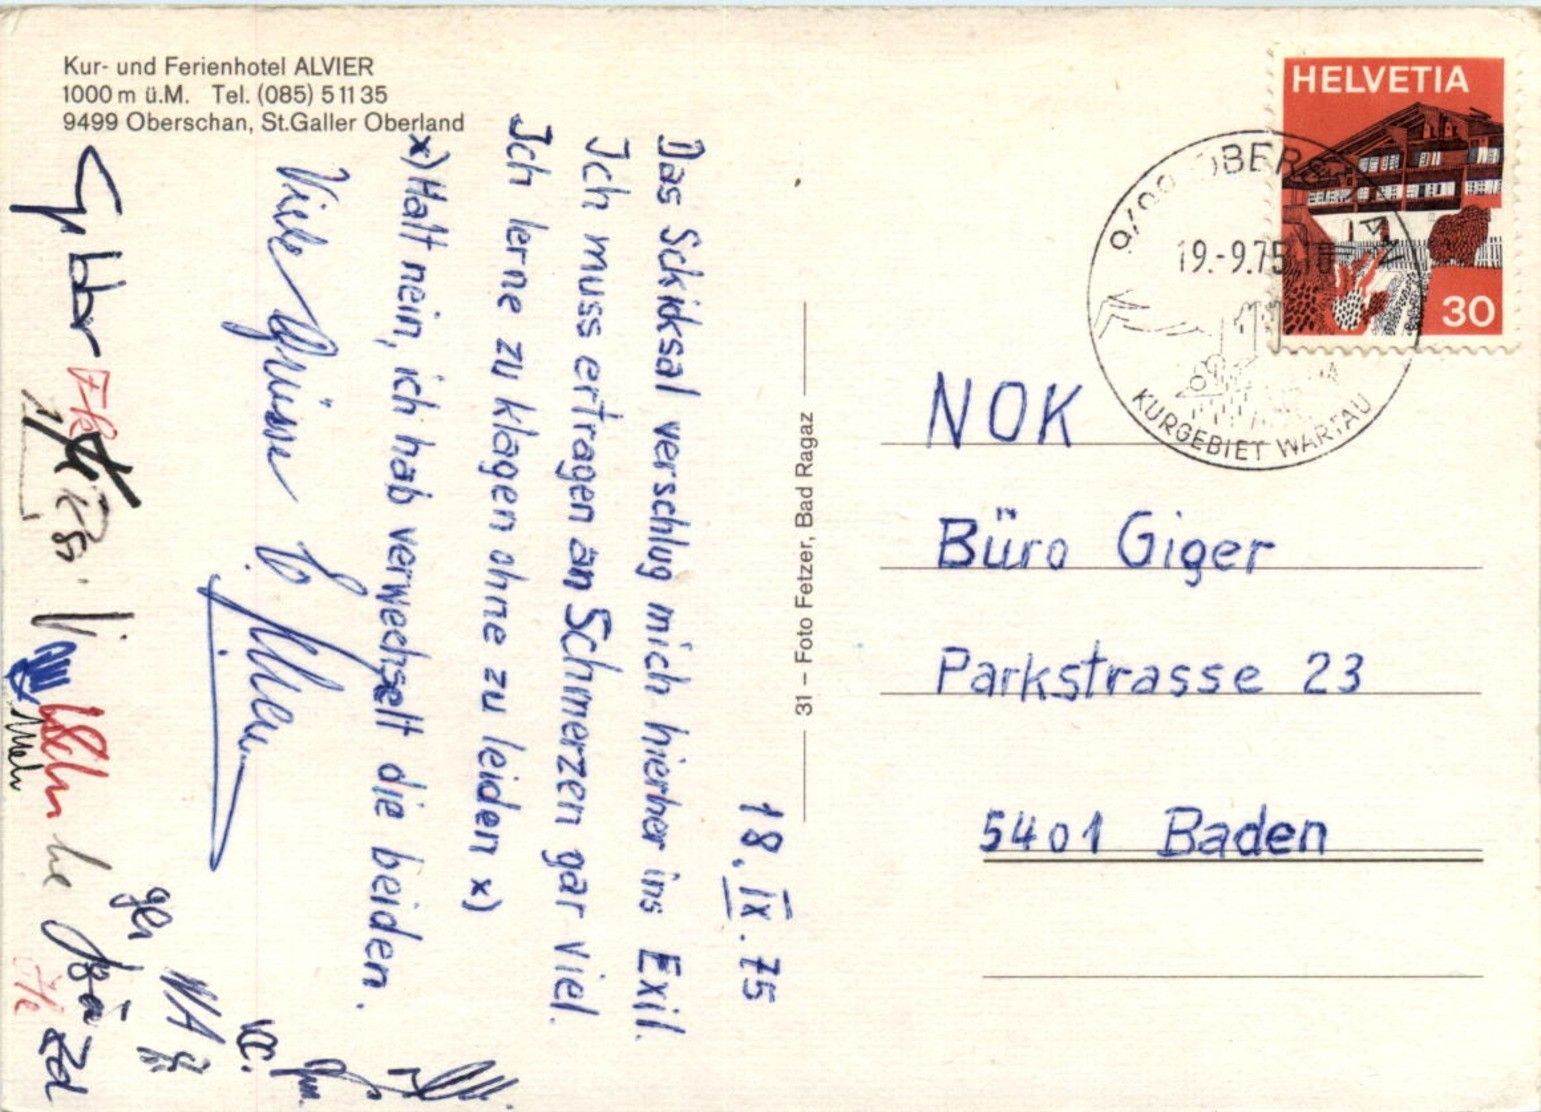 Kur- und Ferienhotel ALVIER
1000 m ü.M. Tel. (085) 5 11 35
9499 Oberschan, St.Galler Oberland
18. IX. 75
Das Schicksal verschlug mich hierher ins Exil.
Ich muss ertragen an Schmerzen gar viel.
Ich lerne zu klagen ohne zu leiden x)
x) Halt nein, ich hab verwechselt die beiden.
Viele Grüsse
31 – Foto Fetzer, Bad Ragaz
HELVETIA
30
19.-9.75
KURGEBIET WARTAU
NOK
Büro Giger
Parkstrasse 23
5401 Baden